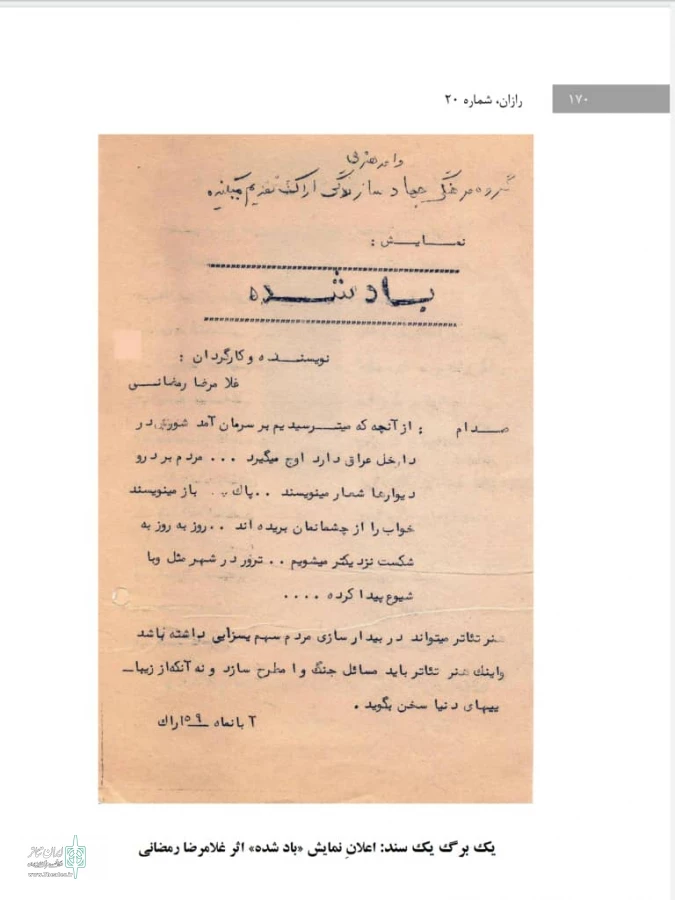 ۱۷۰
رازان، شماره ۲۰
واحد هنری
گروه فرهنگی جهاد سازندگی اراک تقدیم میکند
نمایش :
باد شده
نویسنده و کارگردان :
غلامرضا رمضانی
صدام : از آنچه که میترسیدیم بر سرمان آمد شورش در
داخل عراق دارد اوج میگیرد ... مردم بر در و
دیوارها شعار مینویسند .. پاک .. باز مینویسند
خواب را از چشمانمان بریده اند .. روز به روز به
شکست نزدیکتر میشویم .. ترور در شهر مثل وبا
شیوع پیدا کرده ....
هنر تئاتر میتواند در بیدار سازی مردم سهم بسزایی داشته باشد
و اینک هنر تئاتر باید مسائل جنگ را مطرح سازد و نه آنکه از زیبا
ییهای دنیا سخن بگوید .
۲ بانماه ۵۹ اراک
یک برگ یک سند: اعلانِ نمایش «باد شده» اثر غلامرضا رمضانی
ایران تئاتر
www.theater.ir